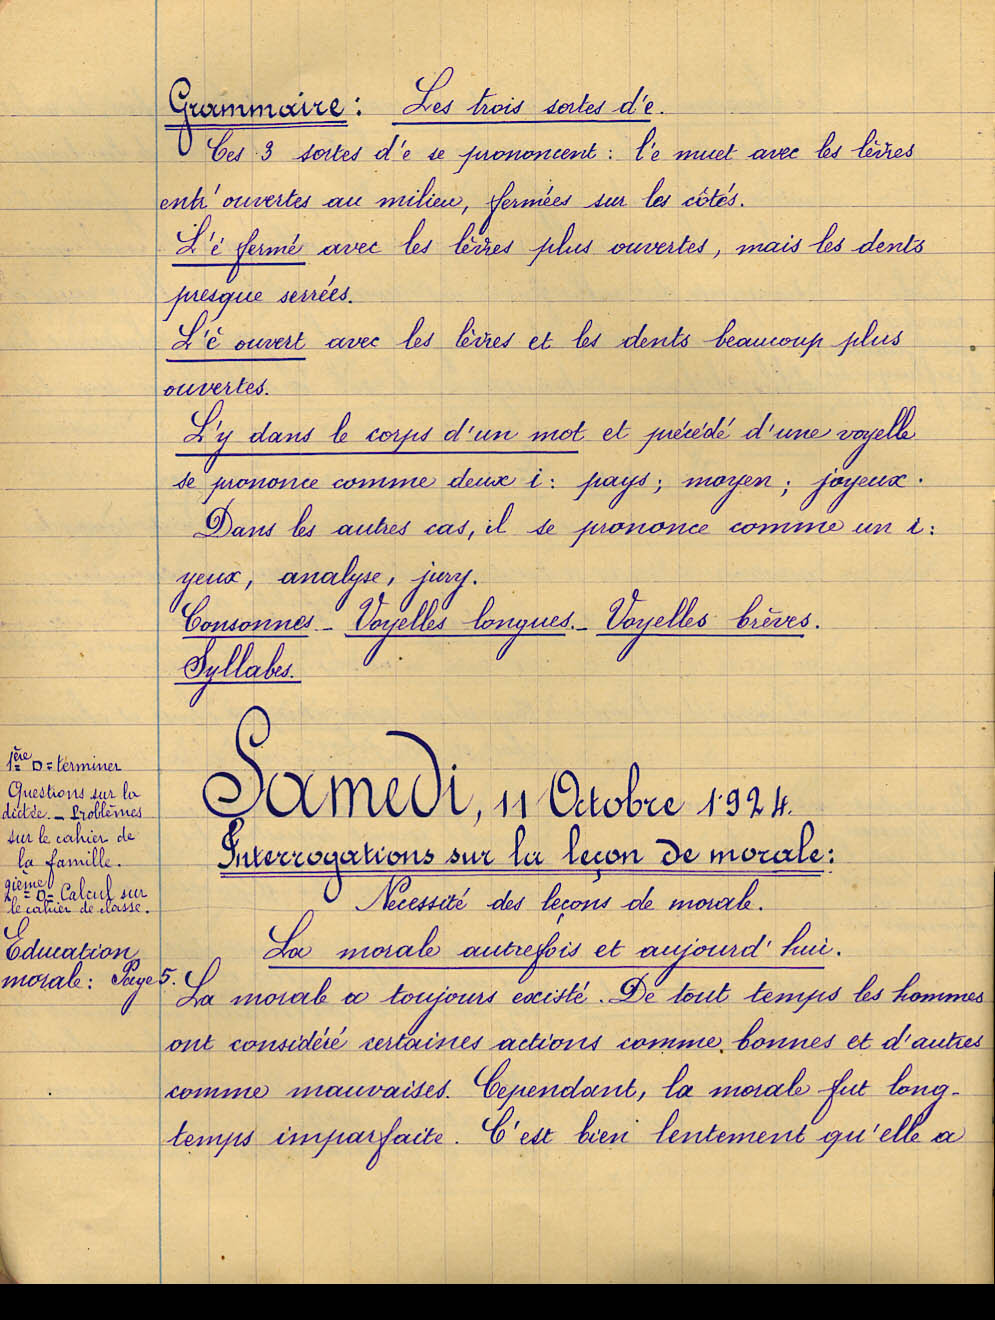 Grammaire : Les trois sortes d'e.
Ces 3 sortes d'e se prononcent : l'e muet avec les lèvres
entr'ouvertes au milieu, fermées sur les côtés.
L'é fermé avec les lèvres plus ouvertes, mais les dents
presque serrées.
L'è ouvert avec les lèvres et les dents beaucoup plus
ouvertes.
L'y dans le corps d'un mot et précédé d'une voyelle
se prononce comme deux i : pays ; moyen ; joyeux.
Dans les autres cas, il se prononce comme un i :
yeux, analyse, jury.
Consonnes – Voyelles longues. – Voyelles brèves.
Syllabes.
Samedi, 11 Octobre 1924.
Interrogations sur la leçon de morale :
Necessité des leçons de morale.
La morale autrefois et aujourd'hui.
1ère D = terminer
Questions sur la
dictée. – Problèmes
sur le cahier de
la famille.
2ième D = Calcul sur
le cahier de classe.
Education
morale : Page 5.
La morale a toujours existé. De tout temps les hommes
ont considéré certaines actions comme bonnes et d'autres
comme mauvaises. Cependant, la morale fut long-
temps imparfaite. C'est bien lentement qu'elle a